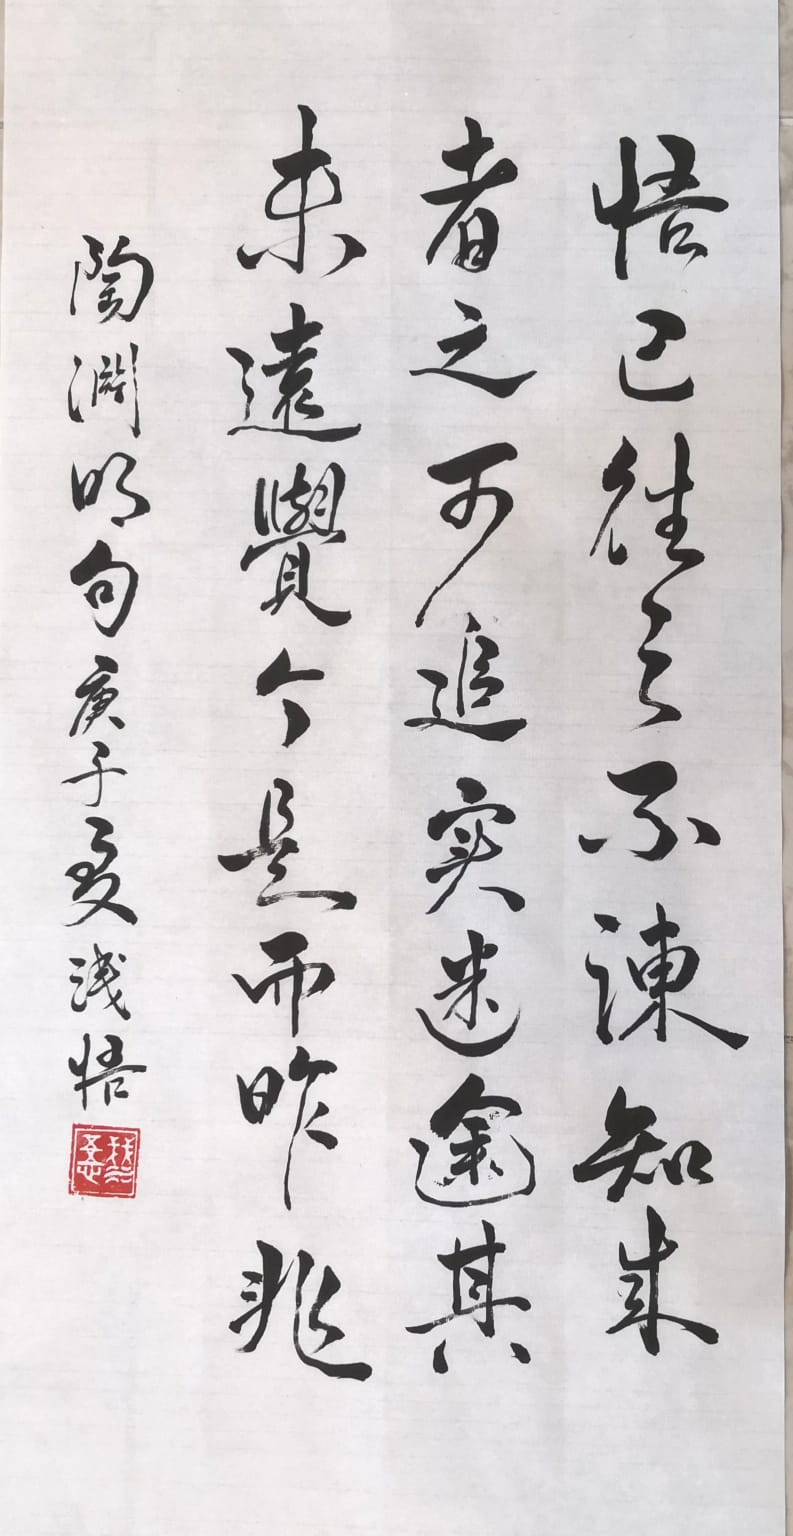 悟已往之不諫知来
者之可追实迷途其
未遠覺今是而昨非
陶淵明句庚子夏浅悟